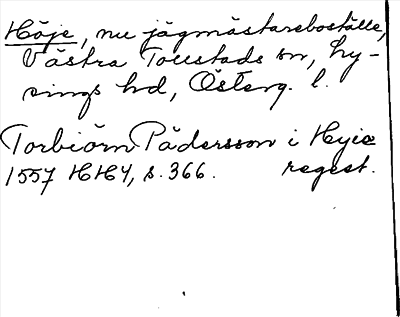 Höje, nu jägmästareboställe,
Västra Tollstads sn, Ly-
sings hd, Österg. l.
Torbiörn Pädersson i Hyie
1557 HH4, s. 366. regest.